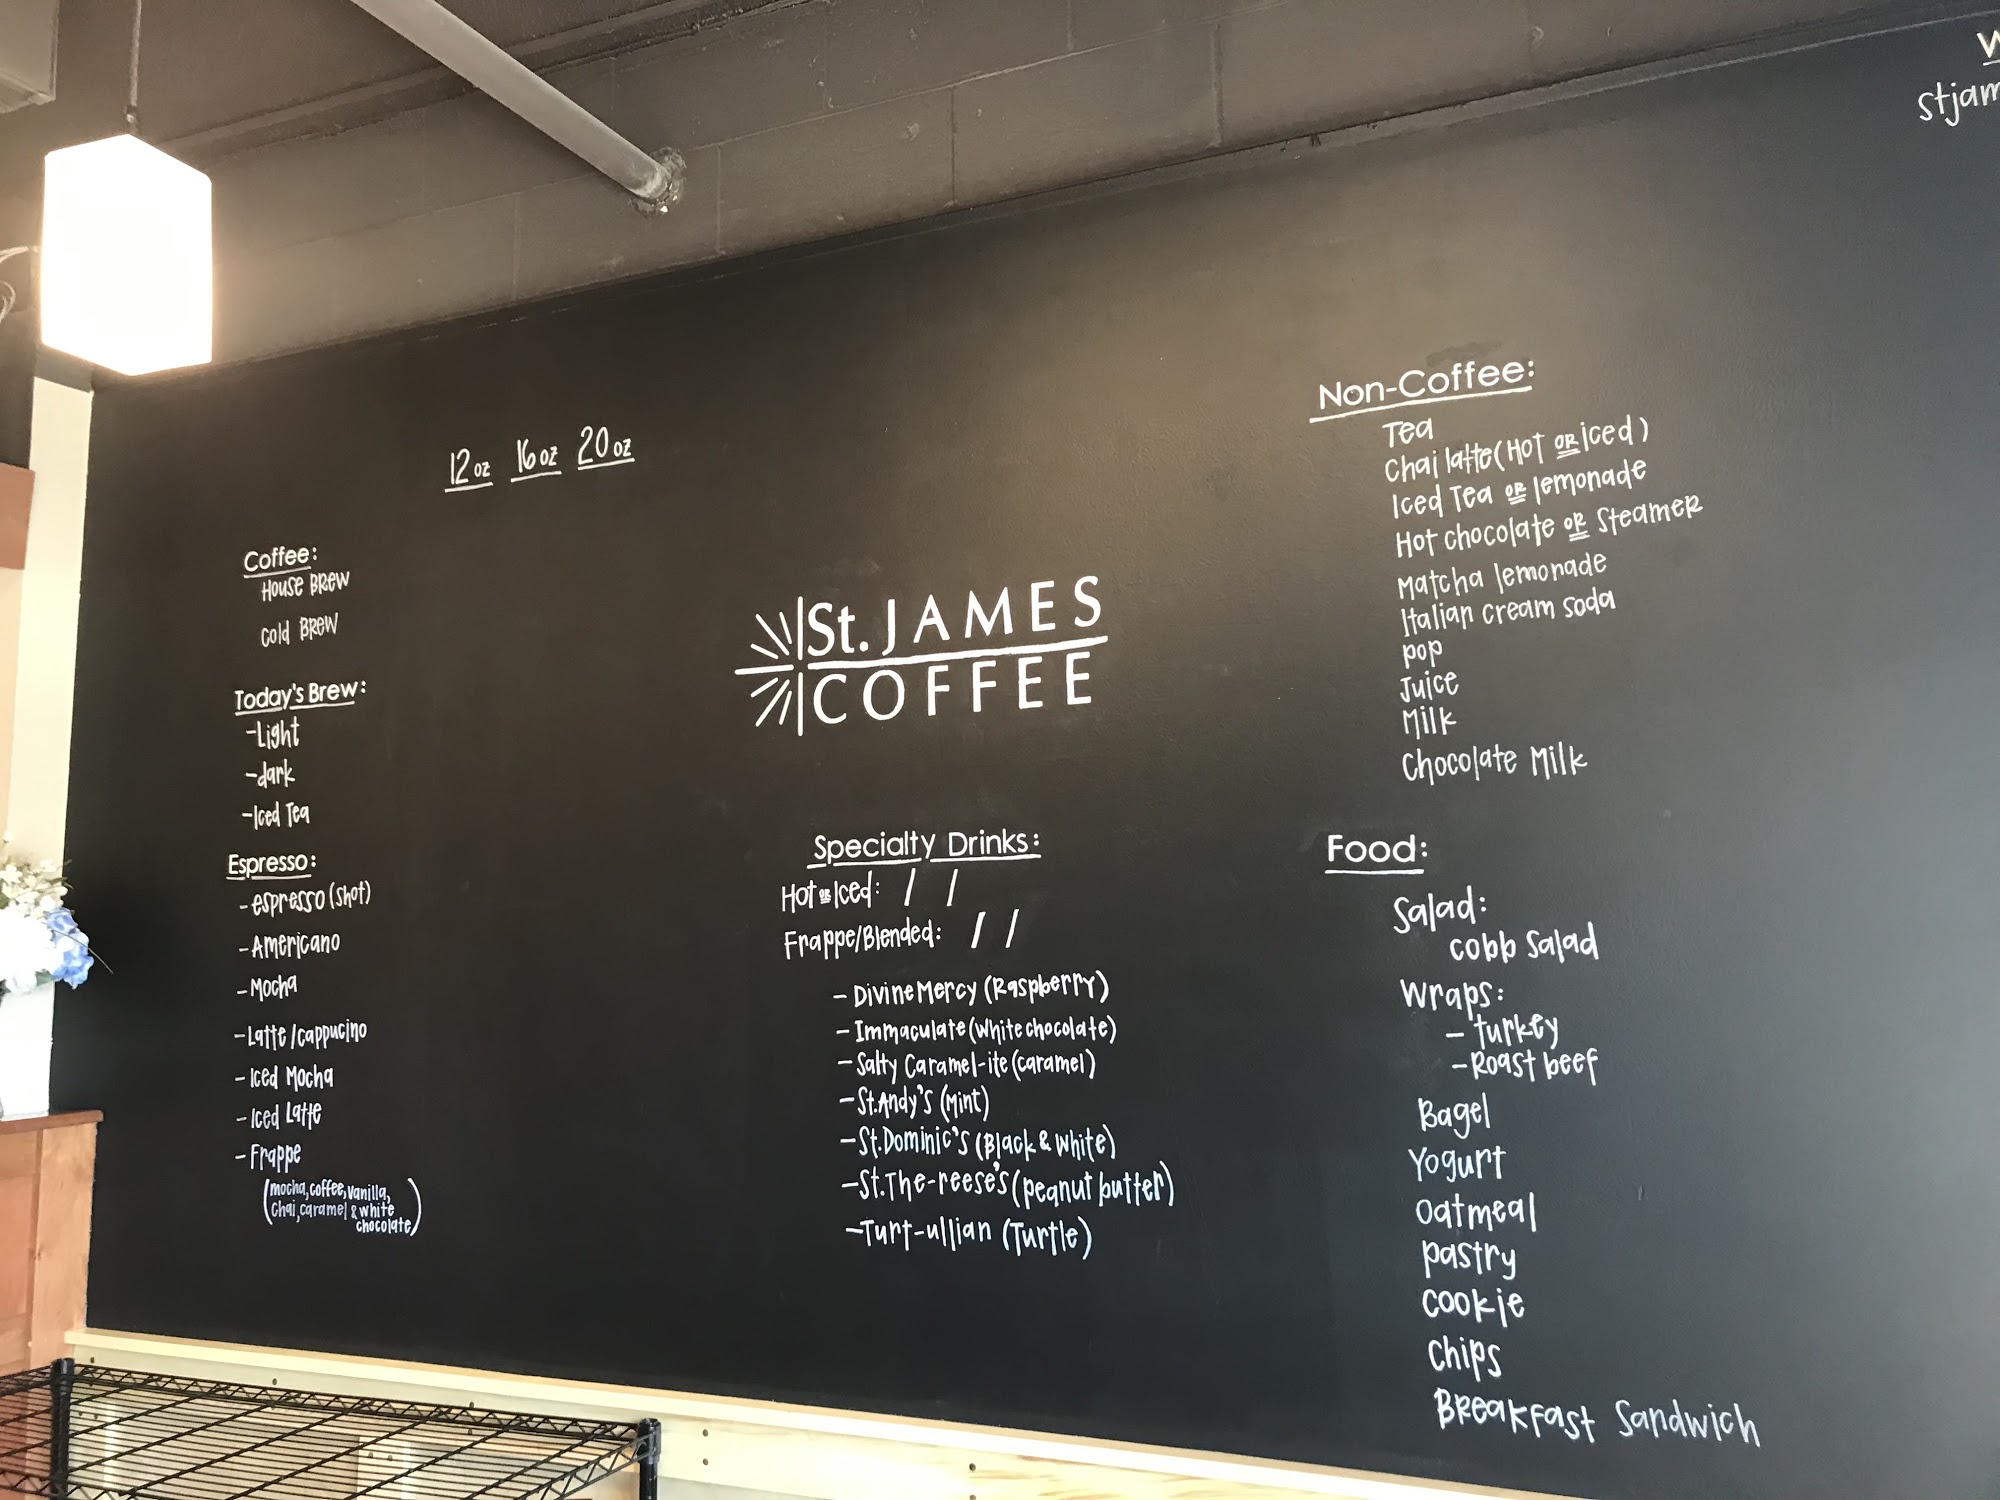 12oz 16oz 20oz
Coffee:
House Brew
Cold Brew
Today's Brew:
-Light
-dark
-Iced Tea
Espresso:
-espresso (shot)
-Americano
-Mocha
-Latte/cappucino
-Iced Mocha
-Iced Latte
-Frappe
(mocha, coffee, vanilla,
chai, caramel & white
chocolate)
St. JAMES
COFFEE
Specialty Drinks:
Hot or Iced: / /
Frappe/Blended: / /
- Divine Mercy (Raspberry)
- Immaculate (white chocolate)
- Salty Caramel-ite (caramel)
- St. Andy's (Mint)
- St. Dominic's (Black & White)
- St. The-reese's (peanut butter)
- Turt-ullian (Turtle)
Non-Coffee:
Tea
Chai latte (Hot or iced)
Iced Tea or lemonade
Hot chocolate or Steamer
Matcha lemonade
Italian cream soda
pop
Juice
Milk
Chocolate Milk
Food:
Salad:
cobb salad
Wraps:
- turkey
- Roast beef
Bagel
Yogurt
oatmeal
pastry
cookie
chips
Breakfast Sandwich